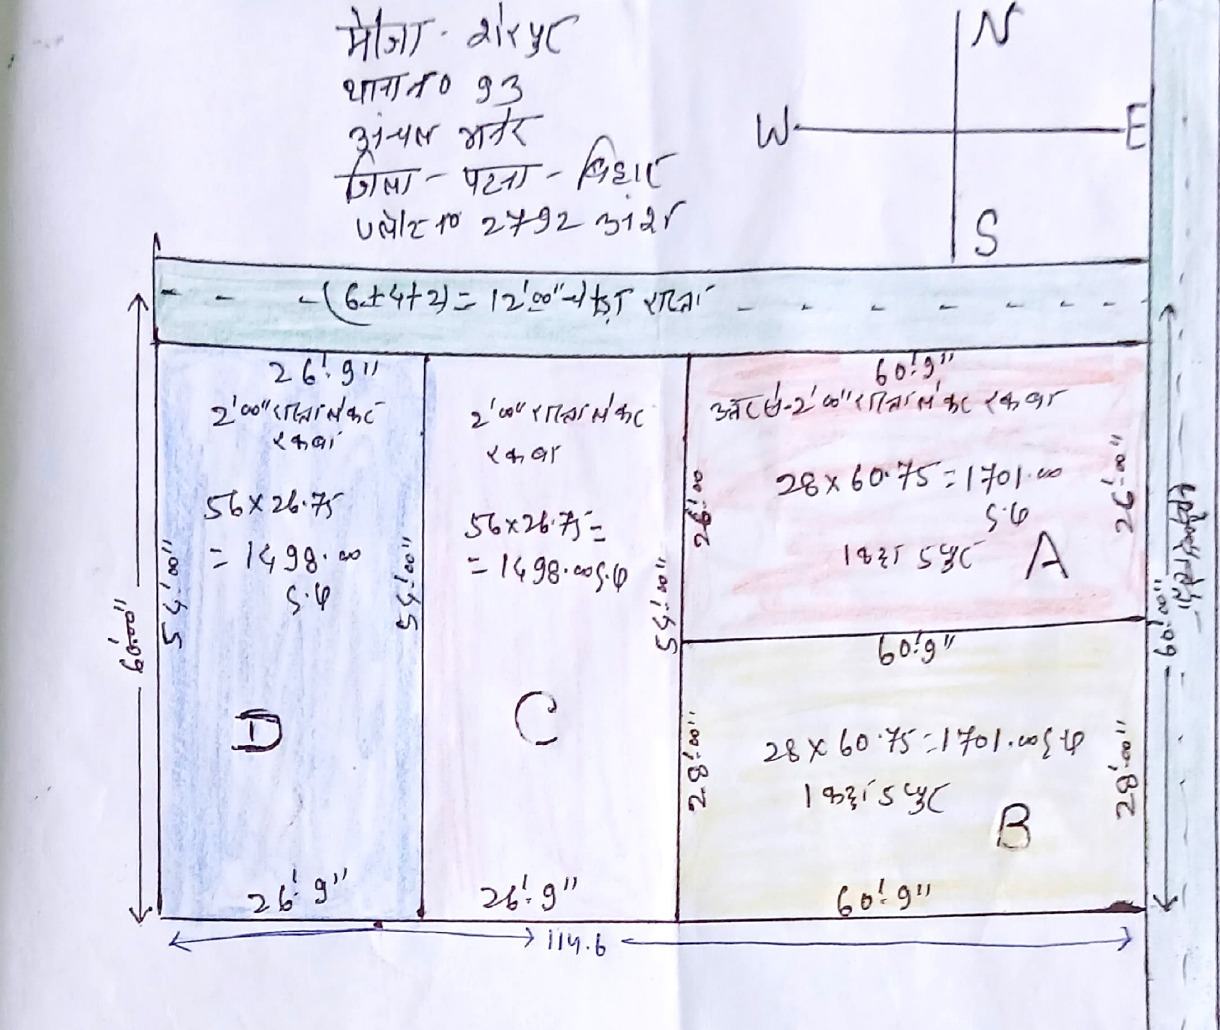 मौजा - शेरपुर
थाना न० 93
अंचल मनेर
जिला - पटना - बिहार
प्लौट न० 2792 अंश
N
W E
S
(6+4+2) = 12'.00" चौड़ा रास्ता
26'.9"
2'00" रास्ता में कट
रकवा
56 x 26.75
= 1498.00
S.फी
54'.00"
54'.00"
D
26'.9"
2'00" रास्ता में कट
रकवा
56 x 26.75 =
= 1498.00 S.फी
54'.00"
C
26'.9"
60'.9"
2'00" रास्ता में कट रकवा
28 x 60.75 = 1701.00
S.फी
1 कट्ठा 5 धुर
26'.00
26'.00"
A
60'.9"
28 x 60.75 = 1701.00 S.फी
1 कट्ठा 5 धुर
28'.00"
28'.00"
B
60'.9"
60'.00"
60'.00"
114.6